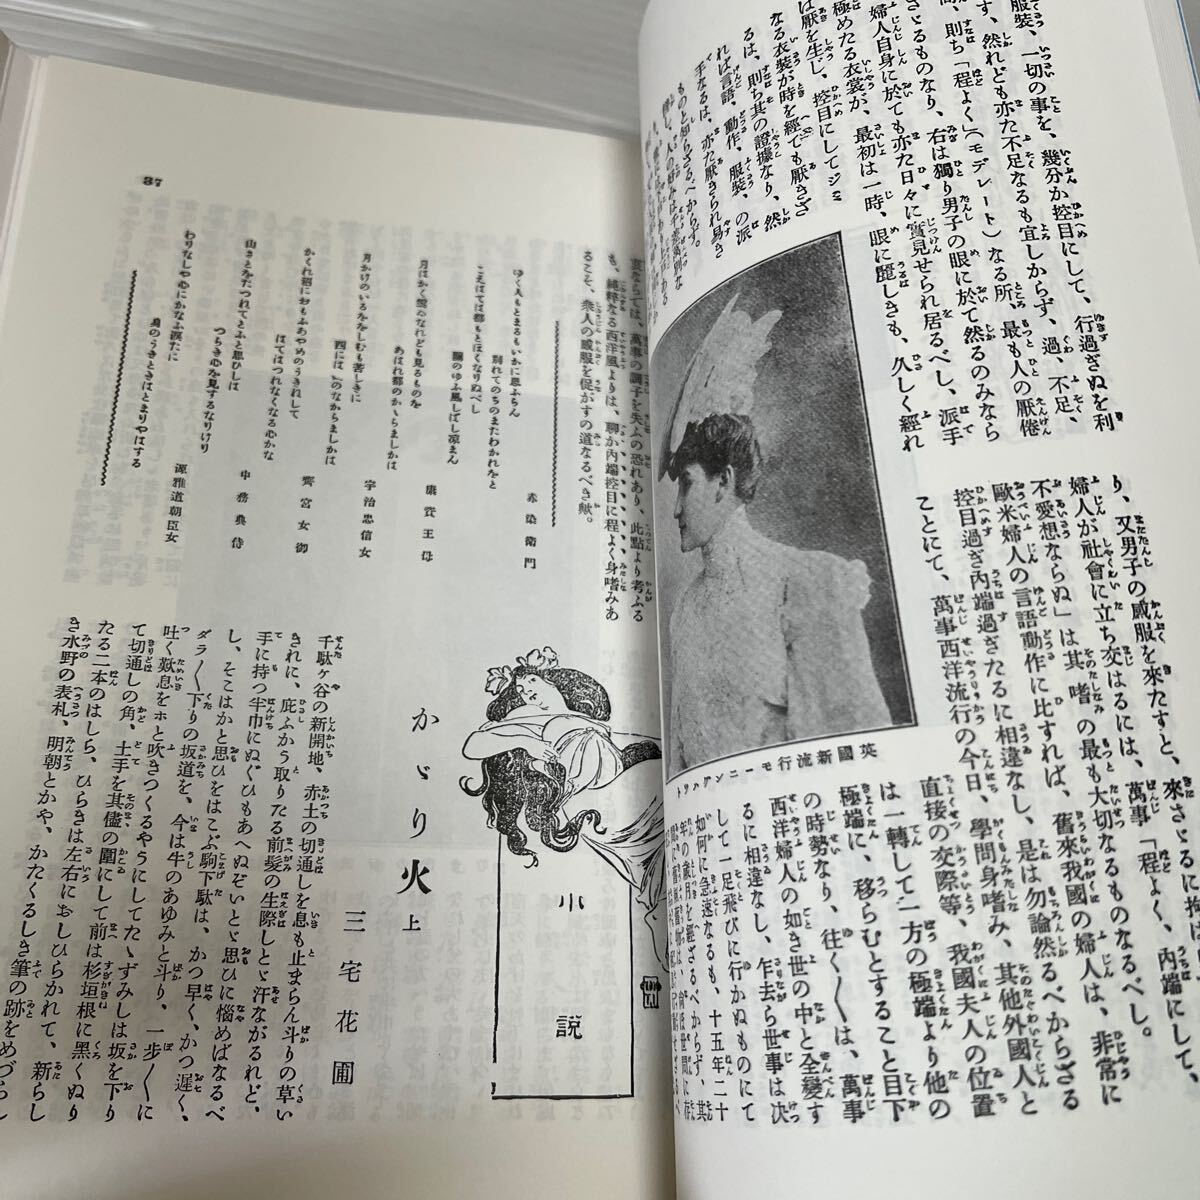 服装、一切の事を、幾分か控目にして、行過ぎぬを利
す、然れども亦た不足なるも宜しからず、過、不足、
則ち「程よく」(モデレート)なる所、最も人の厭倦
さゞるものなり、右は獨り男子の眼に於て然るのみなら
婦人自身に於ても亦た日々に實見せられ居るべし、派手
極めたる衣裳が、最初は一時、眼に麗しきも、久しく經れ
は厭を生じ、控目にしてジミ
なる衣裝が時を經ても厭きざ
るは、則ち其の證據なり、然
れば言語、動作、服裝、の派
手なるは、亦た厭きられ易き
ものと知らざるべからず。
英國新流行モーニングハット
り、又男子の感服を來たすと、
婦人が社會に立ち交はるには、萬事「程よく、內端にして、
不愛想ならぬ」は其嗜の最も大切なるものなるべし。
歐米婦人の言語動作に比すれば、舊來我國の婦人は、非常に
控目過ぎ內端過ぎたるに相違なし、是は勿論然るべからざる
ことにて、萬事西洋流行の今日、學問身嗜み、其他外國人と
直接の交際等、我國夫人の位置
は一轉して一方の極端より他の
極端に、移らむとすること目下
の時勢なり、往く〳〵は、萬事
西洋婦人の如き世の中と全變す
るに相違なし、乍去ら世事は決
して一足飛びに行かぬものにて
如何に急速なるも、十五年二十
年の歲月を經ざるべからず、其
萬事の調子を失ふの恐れあり、此點より考ふる
も、純粹なる西洋風よりは、聊か內端控目に程よく身嗜みあ
るこそ、衆人の感服を促がすの道なるべき歟。
ゆく人もとまるもいかに思ふらん
別れてのちのまたわかれと
赤染衛門
こえはてば都もとほくなりぬべし
關のゆふ風しばし凉まん
康資王母
月はかく雲ゐなれども見るものを
あはれ都のかゝらましかは
宇治忠信女
月かけのいるををしむも苦しきに
西には山のなからましかは
齊宮女御
かくれ沼におもふあやめのうきれして
はてはつれなくなる心かな
中務典侍
山さとをたつれてとふと思ひしは
つらき心を見するなりけり
源雅道朝臣女
わりなしや心にかなふ淚たに
身のうきときはとまりやはする
37
小說
かゞり火 上
三宅花圃
千駄ヶ谷の新開地、赤土の切通しを息も止まらん斗りの草い
きれに、庇ふかう取りたる前髮の生際しとゞ汗ながるれど、
手に持つ半巾にぬぐひもあへぬぞいとゞ思ひに惱めばなるべ
し、そこはかと思ひをはこぶ駒下駄は、かつ早く、かつ遲く、
ダラ〳〵下りの坂道を、今は牛のあゆみと斗り、一步〳〵に
吐く歎息をホと吹きつくるやうにしてたゝずみしは坂を下り
て切通しの角、土手を其儘の圍にして前は杉垣根に黑くぬり
たる二本のはしら、ひらきは左右におしひらかれて、新らし
き水野の表札、明朝とかや、かたくるしき筆の跡をめづらし